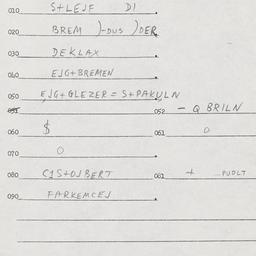 010 S+LEJF DI .
020 BREM )-DUS )DER
030 DEKLAX .
040 EJG+BREMEN
050 EJG+GLEZER = S+PAKULN
051 052 - Q BRILN
060 $ 061 0
070 0 .
080 C1S+OJBERT 081 + ..PUOLT
090 FARKEMCEJ .